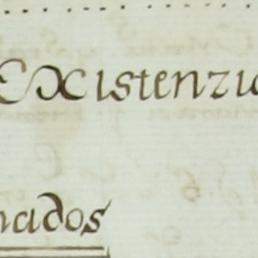 Existenzia
nados